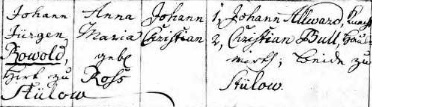 Johann Anna Johann 1, Johann Allward,
Jürgen Maria Christian 2, Christian Bull,
Rowold, geb. beide zu
Hirt zu Ross Stülow.
Stülow